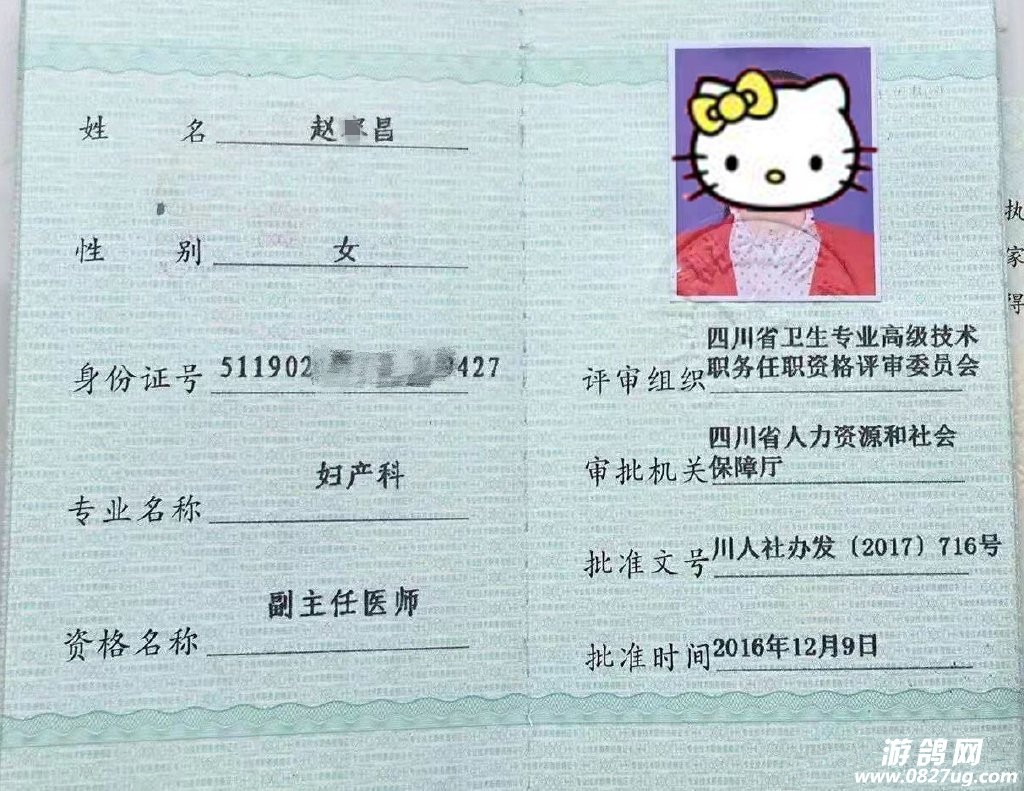 姓 名 赵 昌
性 别 女
身份证号 511902 427
专业名称 妇产科
资格名称 副主任医师
评审组织 四川省卫生专业高级技术
职务任职资格评审委员会
审批机关 四川省人力资源和社会
保障厅
批准文号 川人社办发〔2017〕716号
批准时间 2016年12月9日
执
家
得
游鸽网
www.0827ug.com